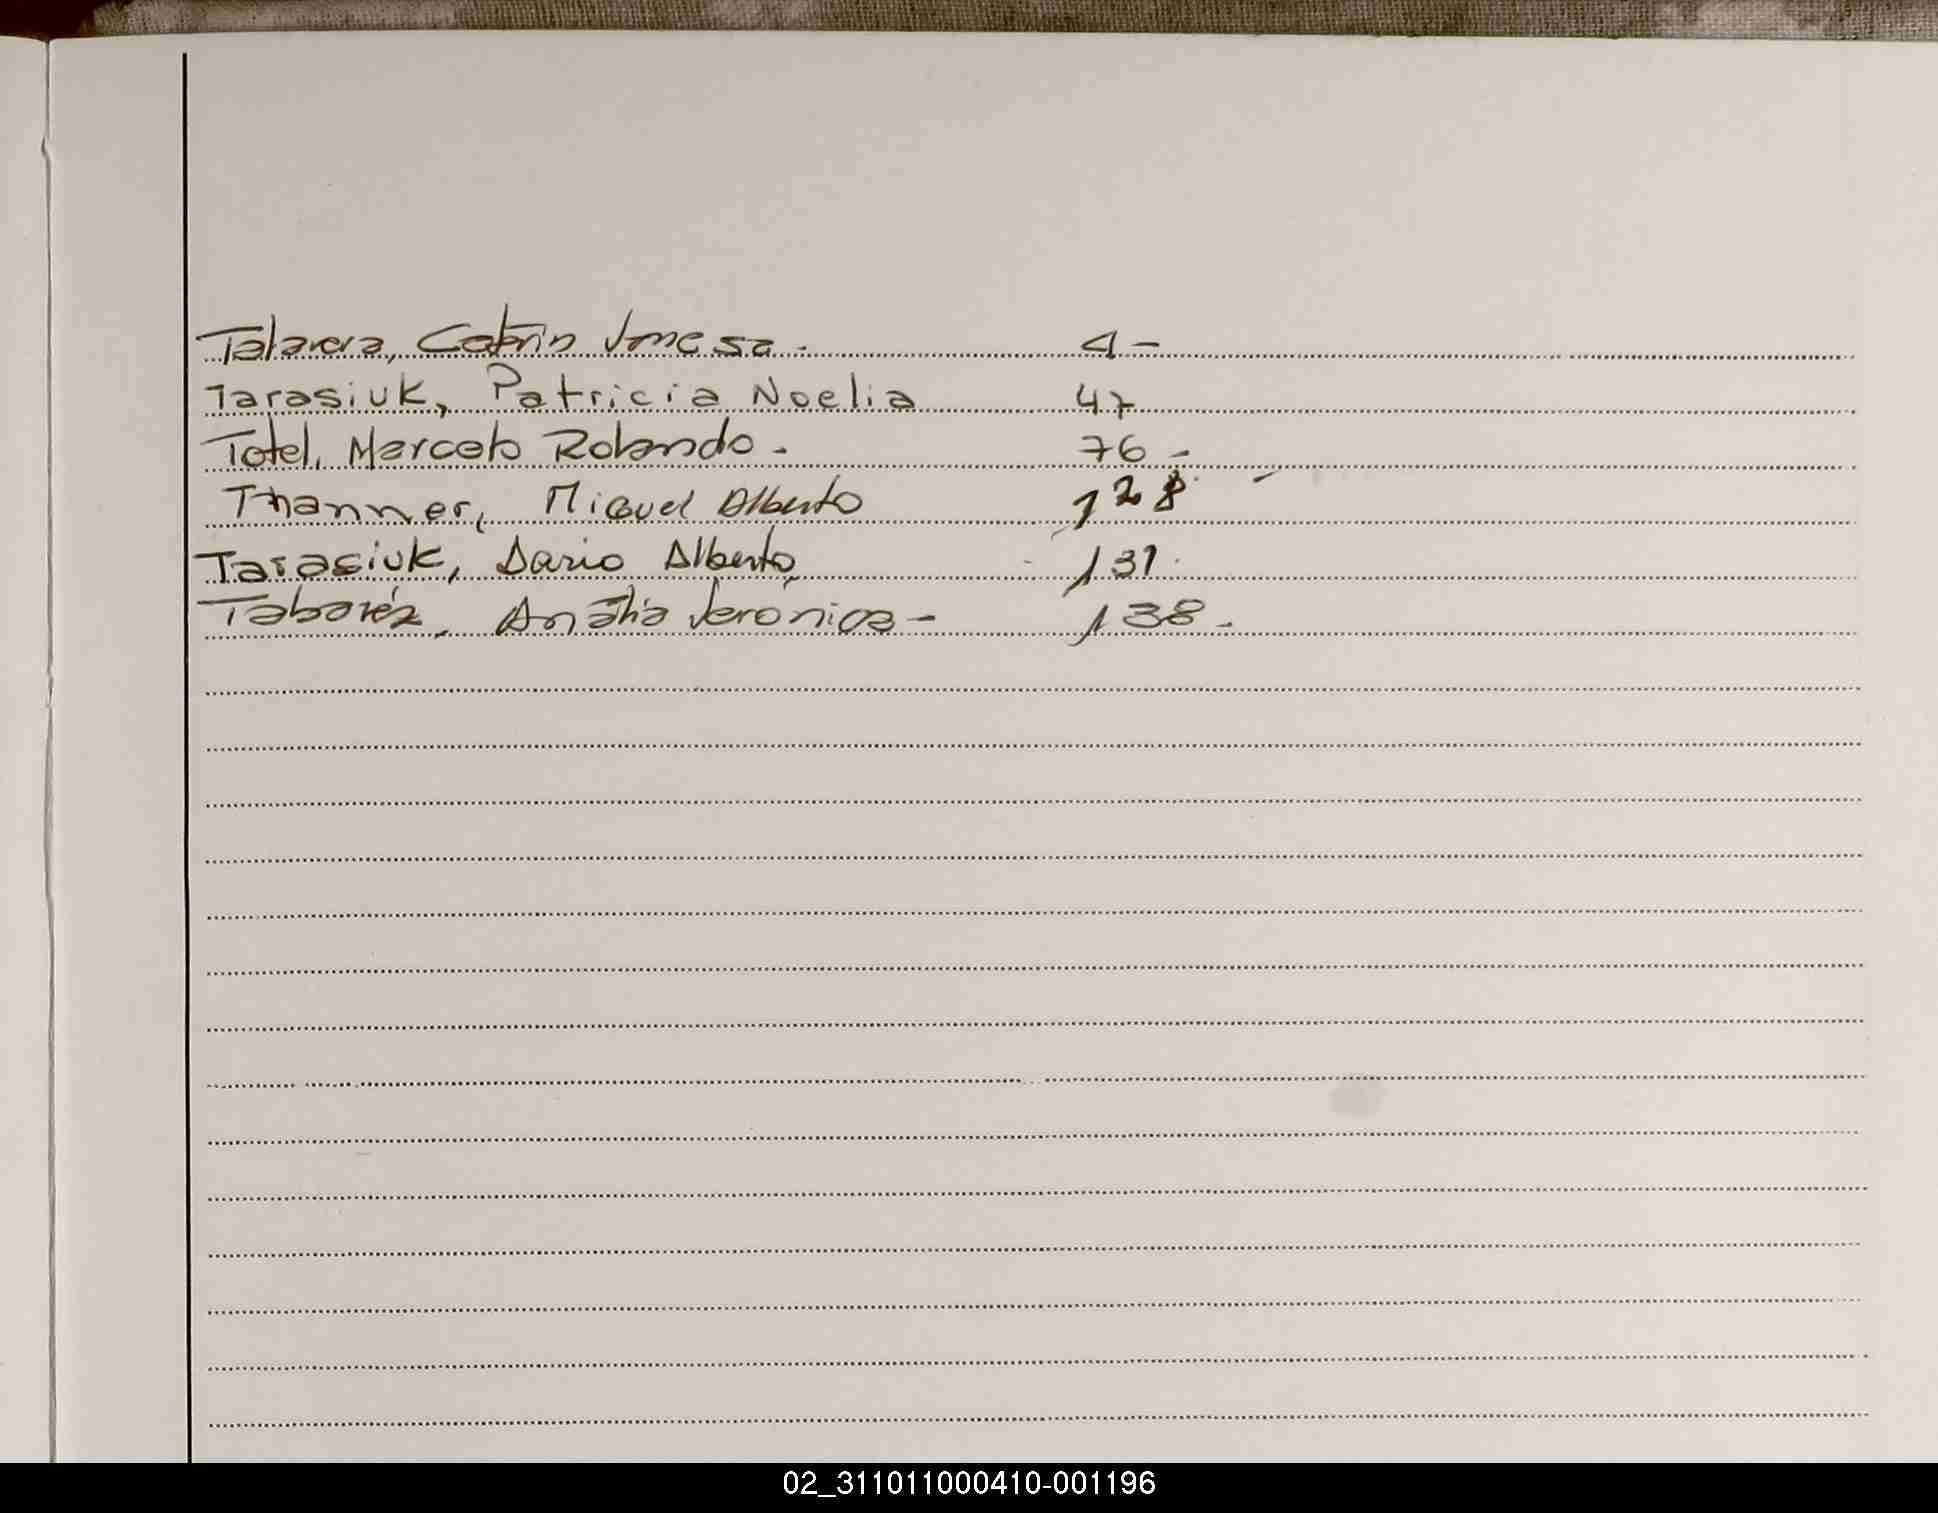 Talavera, Catrin Vanesa. 4-
Tarasiuk, Patricia Noelia 47
Totel, Marcelo Rolando. 76-
Thanner, Miguel Alberto 128
Tarasiuk, Dario Alberto 131
Tabaréz, Anália Verónica- 138-
02_311011000410-001196